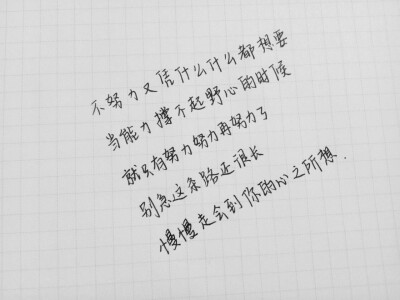 不努力又信什么什么都想要
当能力撑不起野心的时候
就只有努力努力再努力了
别急这条路还很长
慢慢走会到你的心之所想.